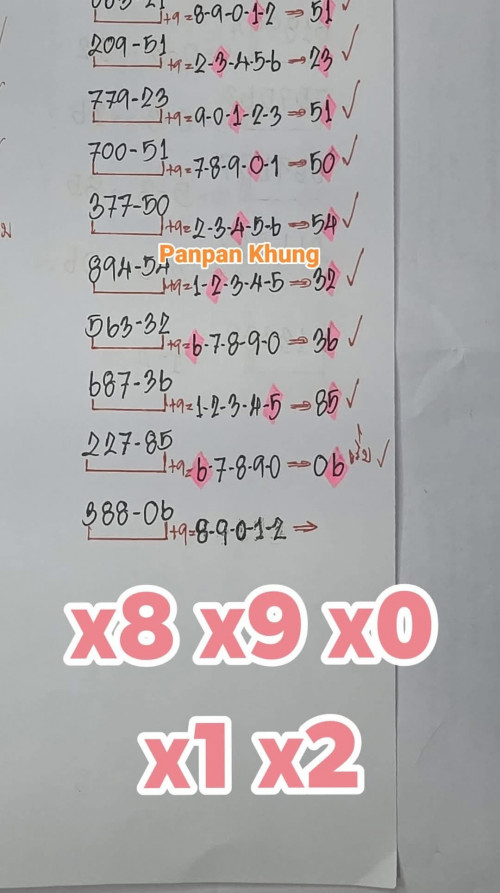 +9=8-9-0-1-2 ⇒ 51 ✓
209-51
+9=2-3-4-5-6 ⇒ 23 ✓
779-23
+9=9-0-1-2-3 ⇒ 51 ✓
700-51
+9=7-8-9-0-1 ⇒ 50 ✓
377-50
+9=2-3-4-5-6 ⇒ 54 ✓
Panpan Khung
894-54
+9=1-2-3-4-5 ⇒ 32 ✓
563-32
+9=6-7-8-9-0 ⇒ 36 ✓
687-36
+9=1-2-3-4-5 ⇒ 85 ✓
227-85
+9=6-7-8-9-0 ⇒ 06 ✓
388-06
+9=8-9-0-1-2 ⇒
x8 x9 x0
x1 x2